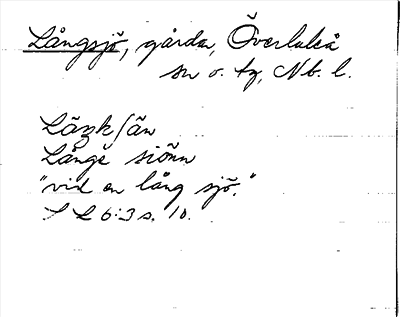 Långsjö, gårdar, Överluleå
sn o. tg, Nb. l.
Långsjön
Långe siönn
"vid en lång sjö."
S L 6:3 s. 10.